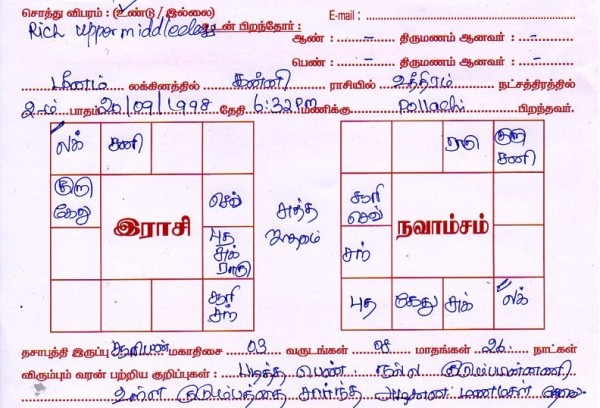 சொத்து விபரம் : (உண்டு / இல்லை) E-mail :
Rich uppermiddleclass உடன் பிறந்தோர் :
ஆண் : – திருமணம் ஆனவர் : –
பெண் : – திருமணம் ஆனவர் : –
மீனம் லக்கினத்தில் கன்னி ராசியில் உத்திரம் நட்சத்திரத்தில்
2-ம் பாதம் 20/09/1998 தேதி 6:32PM மணிக்கு Pollachi பிறந்தவர்.
லக் சனி ராகு குரு சனி
குரு கேது செவ் சூரி செவ்
இராசி அத்த நவாம்சம்
புத சுக் ராகு சந்
சூரி சந் புத கேது சுக் லக்
தசாபுத்தி இருப்பு சூரியன் மகாதிசை 03 வருடங்கள் மாதங்கள் 26 நாட்கள்
விரும்பும் வரன் பற்றிய குறிப்புகள் : படித்த பெண் நல்ல
உள்ள குடும்பத்தை சார்ந்த மணமகள் தேவை.